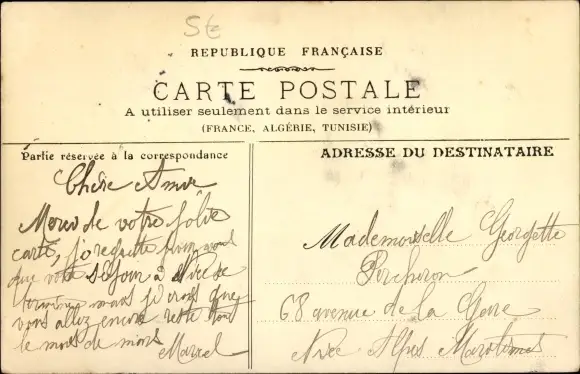 5€
REPUBLIQUE FRANÇAISE
CARTE POSTALE
A utiliser seulement dans le service intérieur
(FRANCE, ALGÉRIE, TUNISIE)
Partie réservée à la correspondance
ADRESSE DU DESTINATAIRE
Chère Amie
Merci de votre jolie
carte, j'regrette pour vous
que votre séjour à Nice se
termine mais je crois que
vous allez encore rester tout
le mois de mars
Marcel
Mademoiselle Georgette
Percheron
68 avenue de la Gare
Nice Alpes Maritimes